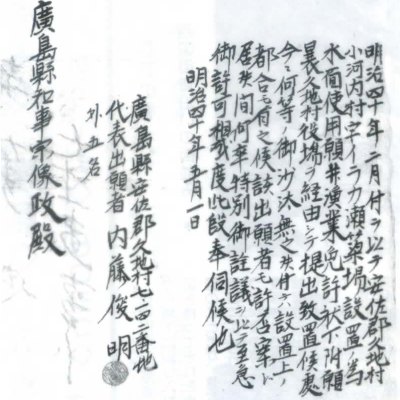 明治四十年二月付ヲ以テ安佐郡久地村
小河内村字イラカ瀬簗場設置ノ為
水面使用願并漁業免許状下附願
曩久地村役場ヲ経由シテ提出致置候処
今ニ何等ノ御沙汰無之候付テハ設置上ノ
都合モ有之候該出願者モ許否案シ
居候間何卒特別御詮議ヲ以テ至急
御許可相成度此段奉伺候也
明治四十年五月一日
廣島縣安佐郡久地村七百四十二番地
代表出願者 内藤俊明
外五名
廣島縣知事宗像政殿